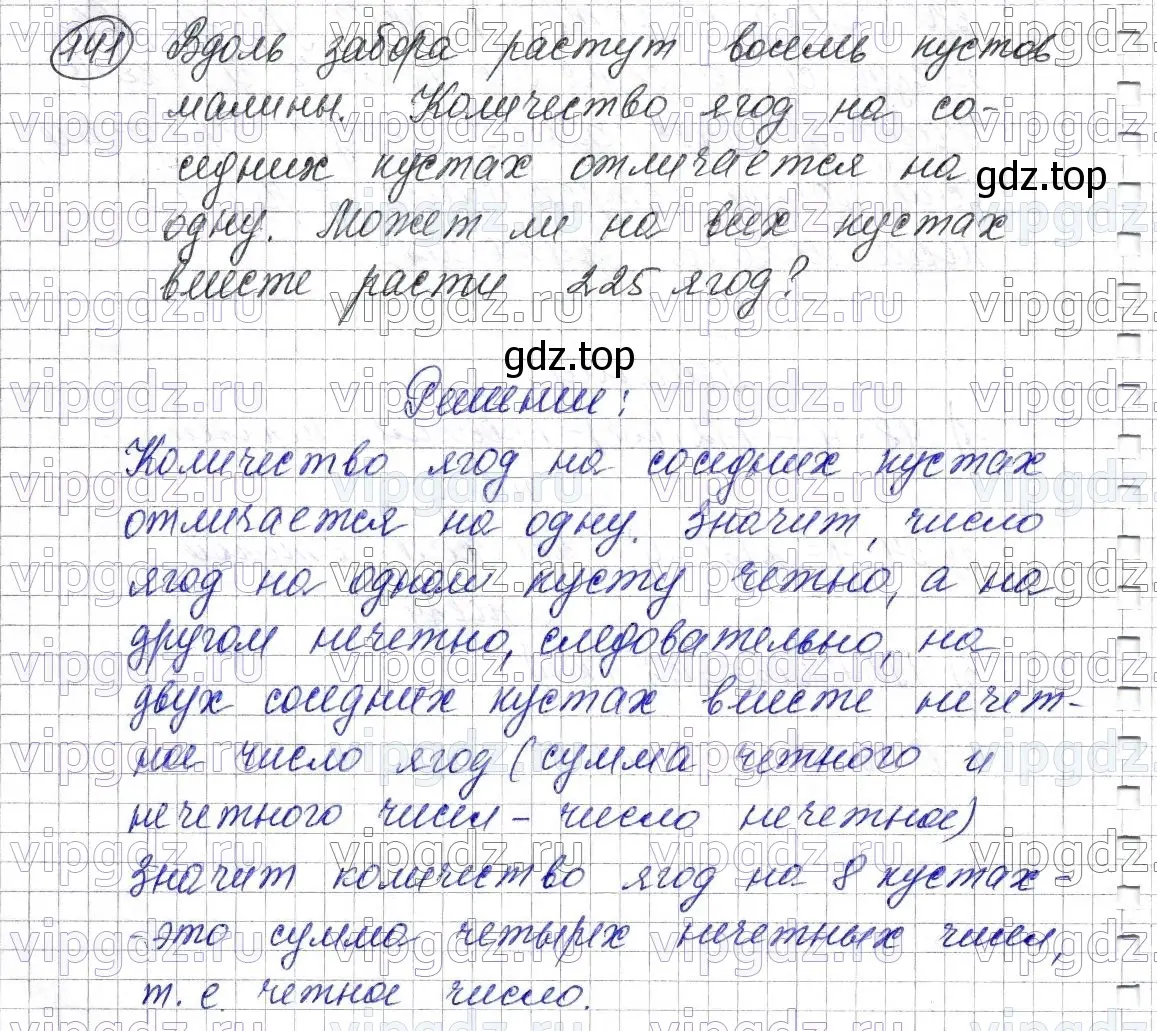 141 Вдоль забора растут восемь кустов
малины. Количество ягод на со-
седних кустах отличается на
gdz.top
одну. Может ли на всех кустах
вместе расти 225 ягод?
gdz.top
Решение:
Количество ягод на соседних кустах
отличается на одну. Значит, число
ягод на одном кусту четно, а на
другом нечетно, следовательно, на
двух соседних кустах вместе нечет-
ное число ягод (сумма четного и
нечетного чисел - число нечетное)
Значит количество ягод на 8 кустах -
- это сумма четырех нечетных чисел,
т. е. четное число.
vipgdz.ru